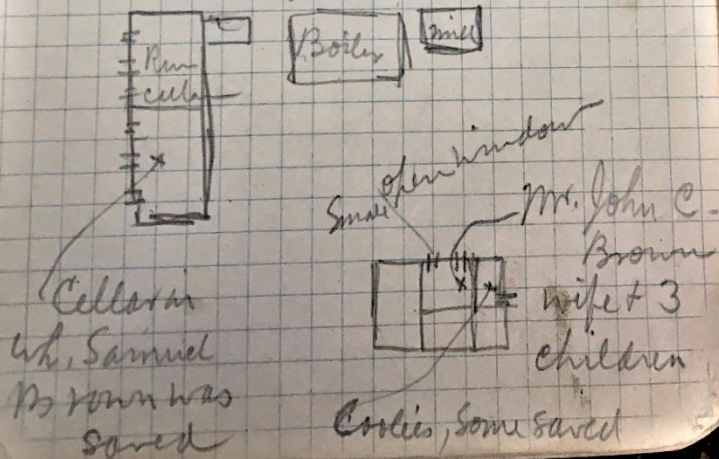 Rum
cellar
Boiler
mill
Small open window
Mr. John C.
Brown
wife + 3
children
Cellar in
wh. Samuel
Brown was
saved
Coolies, Some saved